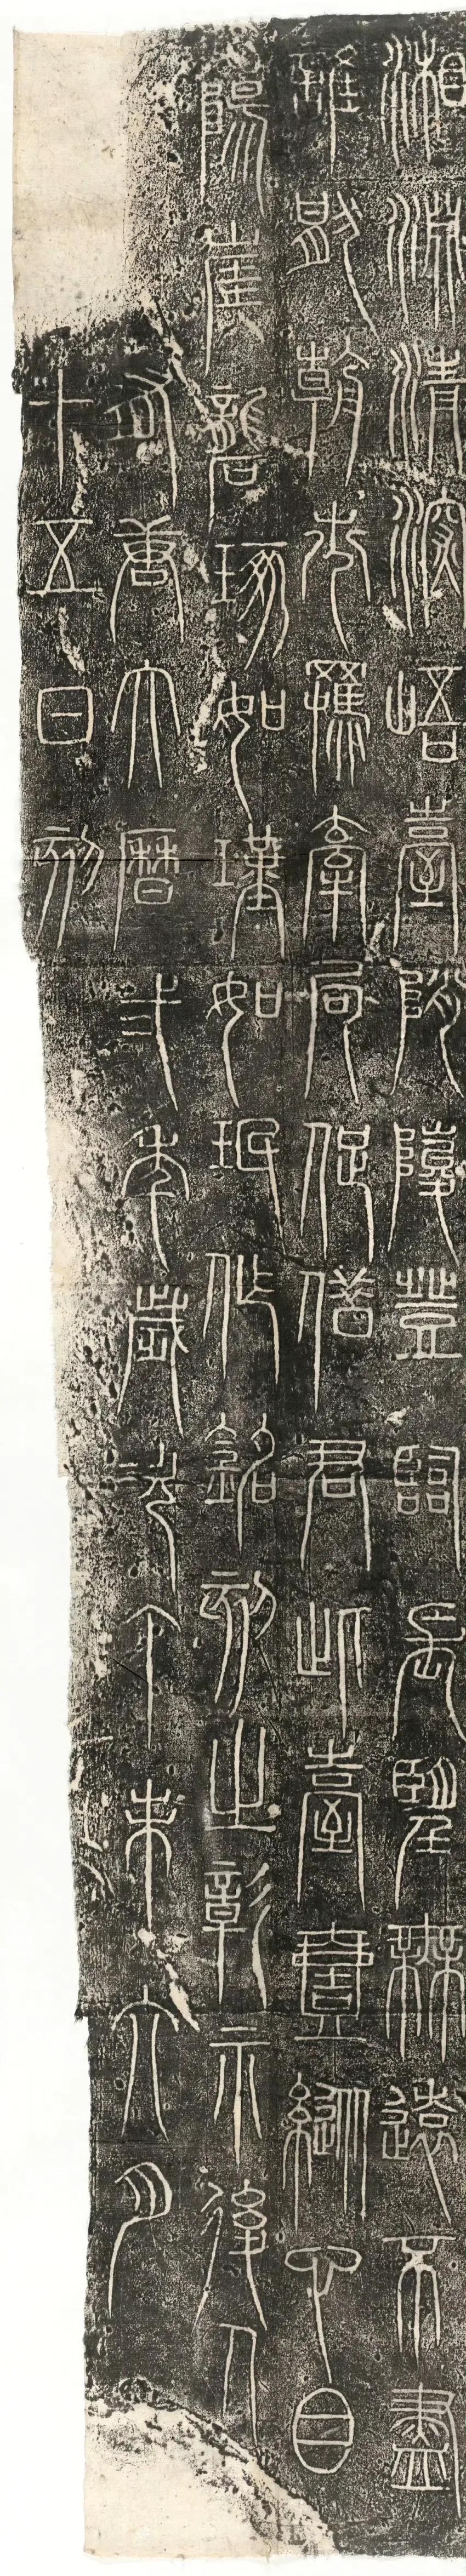 湘淵清深峿臺陗陵登臨長望無遠不盡
誰厭朝市羈牽局促借君此臺壹縱心目
陽崖礱琢如瑾如珉作銘刻之彰示後人
有唐大曆弍年歲次丁未六月
十五日刻